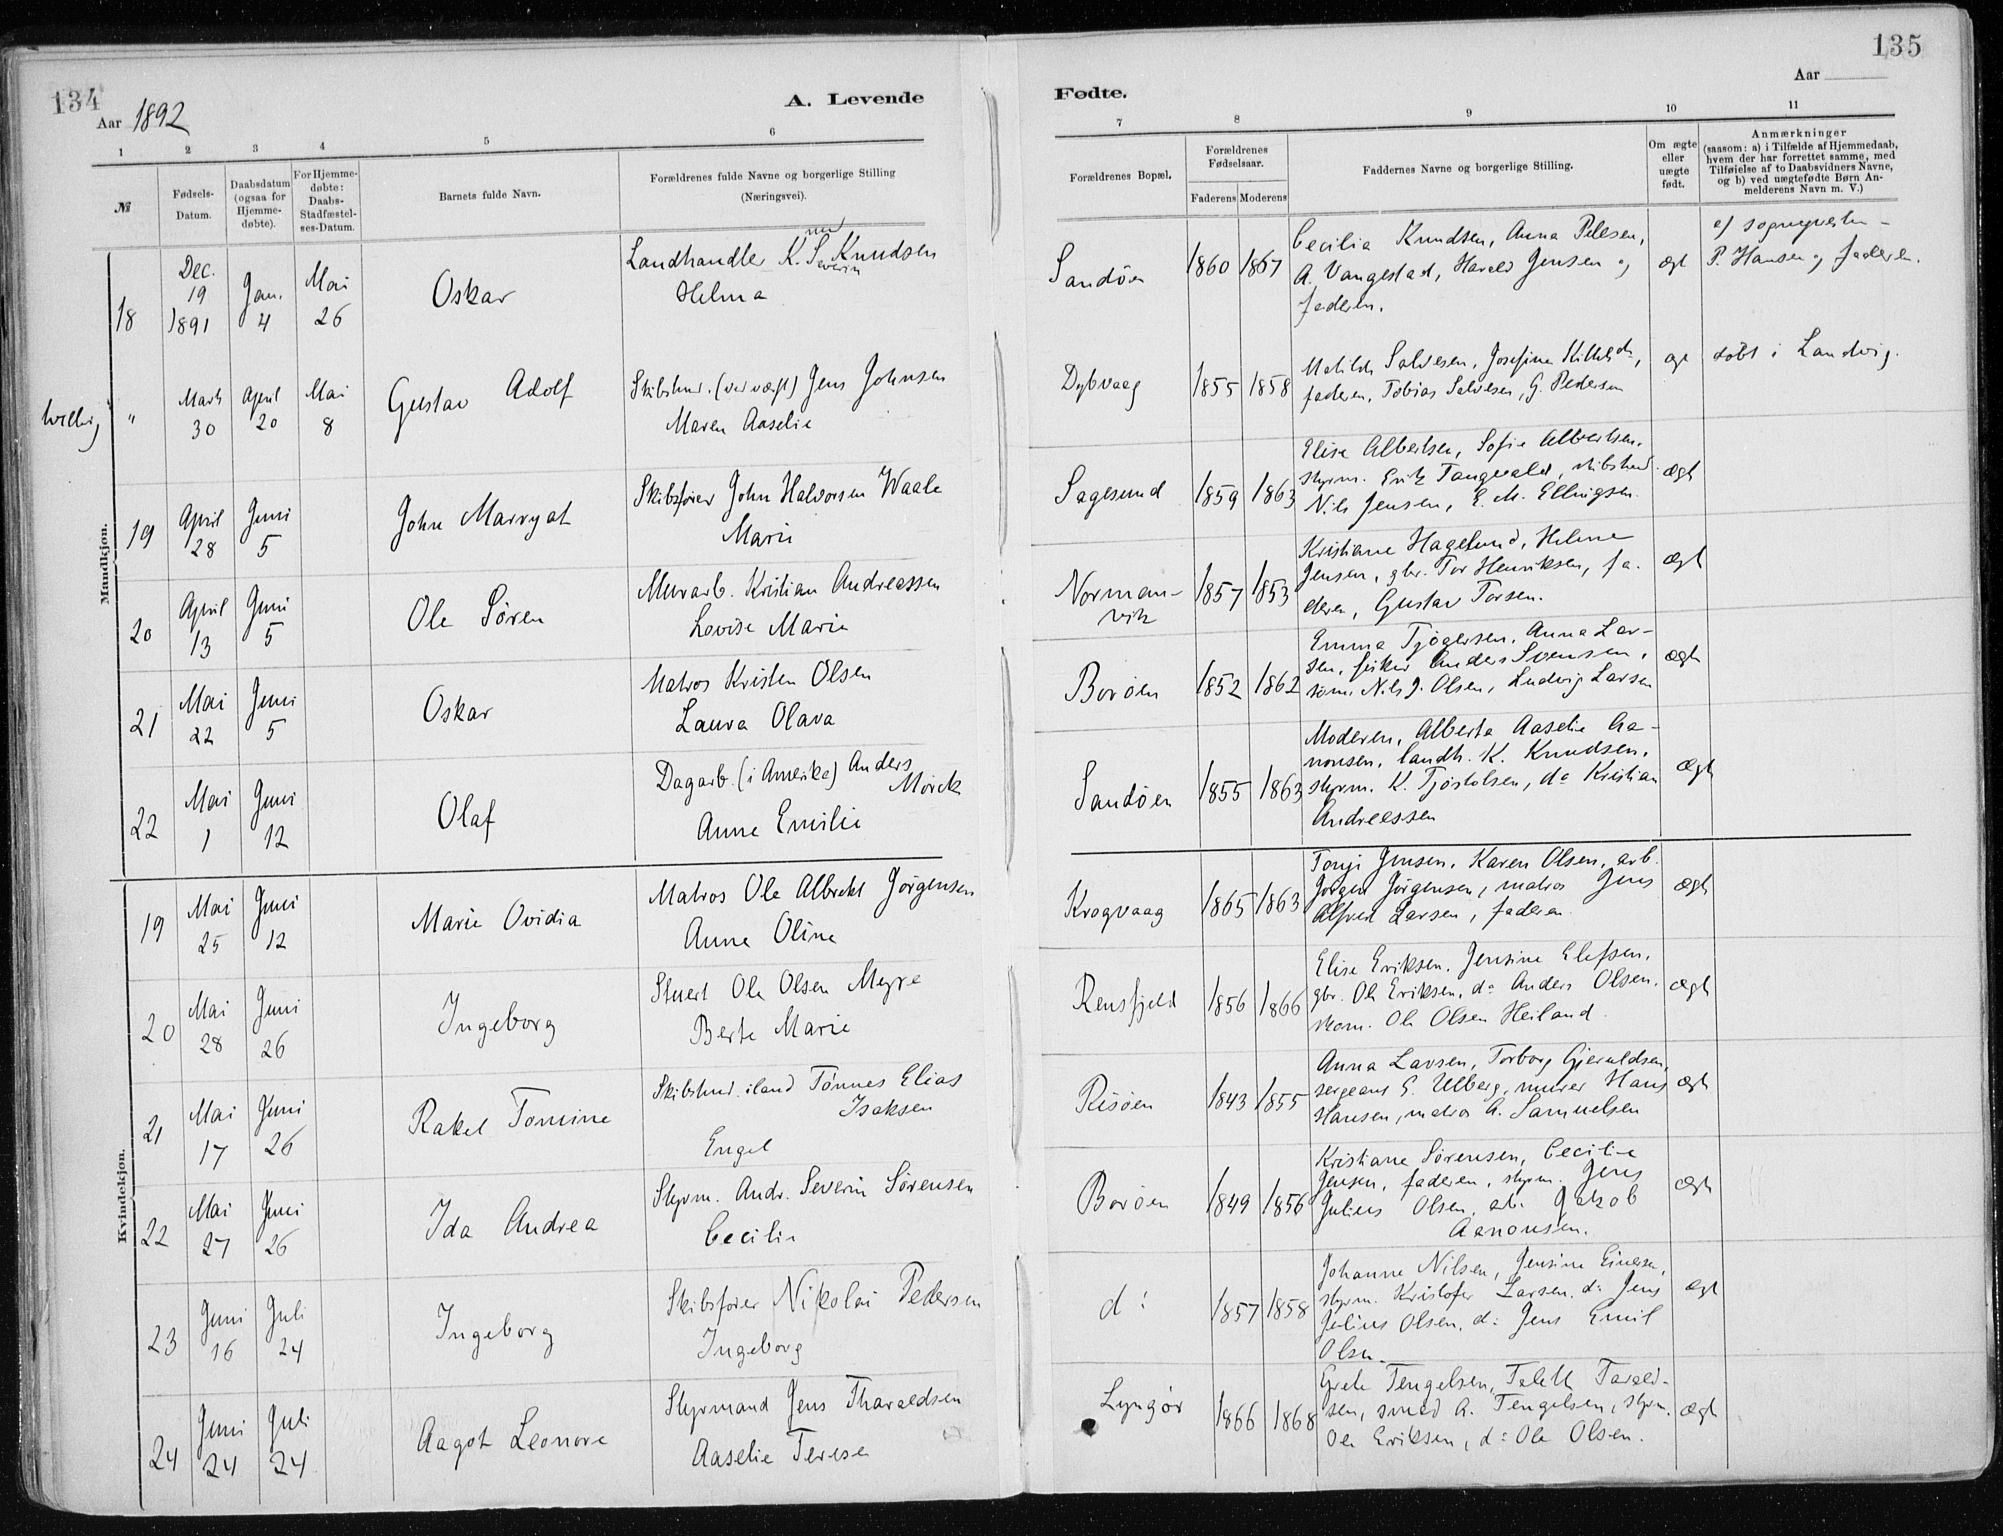 134
Aar 1892
A. Levende
1 2 3 4 5 6
№
Fødsels-Datum.
Daabsdatum (ogsaa for Hjemme-døbte).
For Hjemme-døbte: Daabs-Stadfæstel-ses-Datum.
Barnets fulde Navn.
Forældrenes fulde Navne og borgerlige Stilling (Næringsvei).
Mandkjøn.
18 Dec. 19 1891 Jan. 4 Mai 26 Oskar
Landhandler K. Severin Knudsen
Helma
" Marts 30 April 20 Mai 8 Gustav Adolf
Skibstmr. Jens Johnsen
Maren Aaselie
19 April 28 Juni 5 John Marryat
Skibsfører John Halvorsen Waale
Marie
20 April 13 Juni 5 Ole Søren
Murarb. Kristian Andreassen
Lovise Marie
21 Mai 22 Juni 5 Oskar
Matros Kristen Olsen
Laura Olava
22 Mai 1 Juni 12 Olaf
Dagarb. (i Amerika) Anders Mørck
Anne Emilie
Kvindekjøn.
19 Mai 25 Juni 12 Marie Ovidia
Matros Ole Albrekt Jørgensen
Anne Oline
20 Mai 28 Juni 26 Ingeborg
Stuert Ole Olsen Myre
Berte Marie
21 Mai 17 Juni 26 Rakel Tomine
Skibstmd. iland Tønnes Elias
Isaksen
Engel
22 Mai 27 Juni 26 Ida Andrea
Styrm. Andr. Severin Sørensen
Cecilie
23 Juni 16 Juli 24 Ingeborg
Skibsfører Nikolai Pedersen
Ingeborg
24 Juni 24 Juli 24 Aagot Leonore
Styrmand Jens Tharaldsen
Aaselie Terese
135
Fødte.
Aar
7 8 9 10 11
Forældrenes Bopæl.
Forældrenes Fødselsaar.
Faderens Moderens
Faddernes Navne og borgerlige Stilling.
Om ægte eller uægte født.
Anmærkninger
(saasom: a) i Tilfælde af Hjemmedaab,
hvem der har forrettet samme, med
Tilføielse af to Daabsvidners Navne,
og b) ved uægtefødte Børn An-
melderens Navn m. V.)
Sandøen 1860 1867
Cecilia Knudsen, Anna Pedersen,
A. Vangestad, Harald Jensen og
faderen.
ægt
P. Hansen og faderen.
Dybvaag 1855 1858
Matilde Salvesen, Josefine
faderen, Tobias Salvesen, G. Pedersen
ægt
døbt i Landvig.
Sagesund 1859 1863
Elise Albertsen, Sofie Albertsen,
styrm. Erik Tangvald, skibstmd.
Nils Jensen, E. M. Ellingsen.
ægt
Normanvik 1857 1853
Kristiane Hagelund, Helene
Jensen, gbr. Tor Henriksen, fa-
deren, Gustav Torsen.
ægt
Borøen 1852 1862
Emma Tjøgersen, Anna Lar-
sen, fisker Anders Svensen,
søm. Nils J. Olsen, Ludvig Larsen
ægt
Sandøen 1855 1863
Moderen, Alberta Aaselie Aa-
nonsen, landh. K. Knudsen,
styrm. K. Tjøstolsen, do Kristian
Andreassen
ægt
Krogvaag 1865 1863
Tonji Jensen, Karen Olsen, arb.
Jørgen Jørgensen, matros Jens
Alfred Larsen, faderen.
ægt
Rensfjeld 1856 1866
Elise Eriksen, Jensine Elefsen,
gbr. Ole Eriksen, do Anders Olsen,
skom. Ole Olsen Heiland.
ægt
Risøen 1843 1855
Anna Larsen, Torborg Gjeruldsen,
sergeant G. Ulberg, murer Hans
Hansen, matros A. Samuelsen
ægt
Borøen 1849 1856
Kristiane Sørensen, Cecilie
Jensen, faderen, styrm. Jens
Julius Olsen, arb. Jakob
Aanonsen.
ægt
do 1857 1858
Johanne Nilsen, Jensine Einersen,
styrm. Kristofer Larsen, do Jens
Julius Olsen, do Jens Emil
Olsen.
ægt
Lyngør 1866 1868
Grete Tengelsen, Talette Tarald-
sen, smed A. Tengelsen, styrm.
Ole Eriksen, do Ole Olsen.
ægt